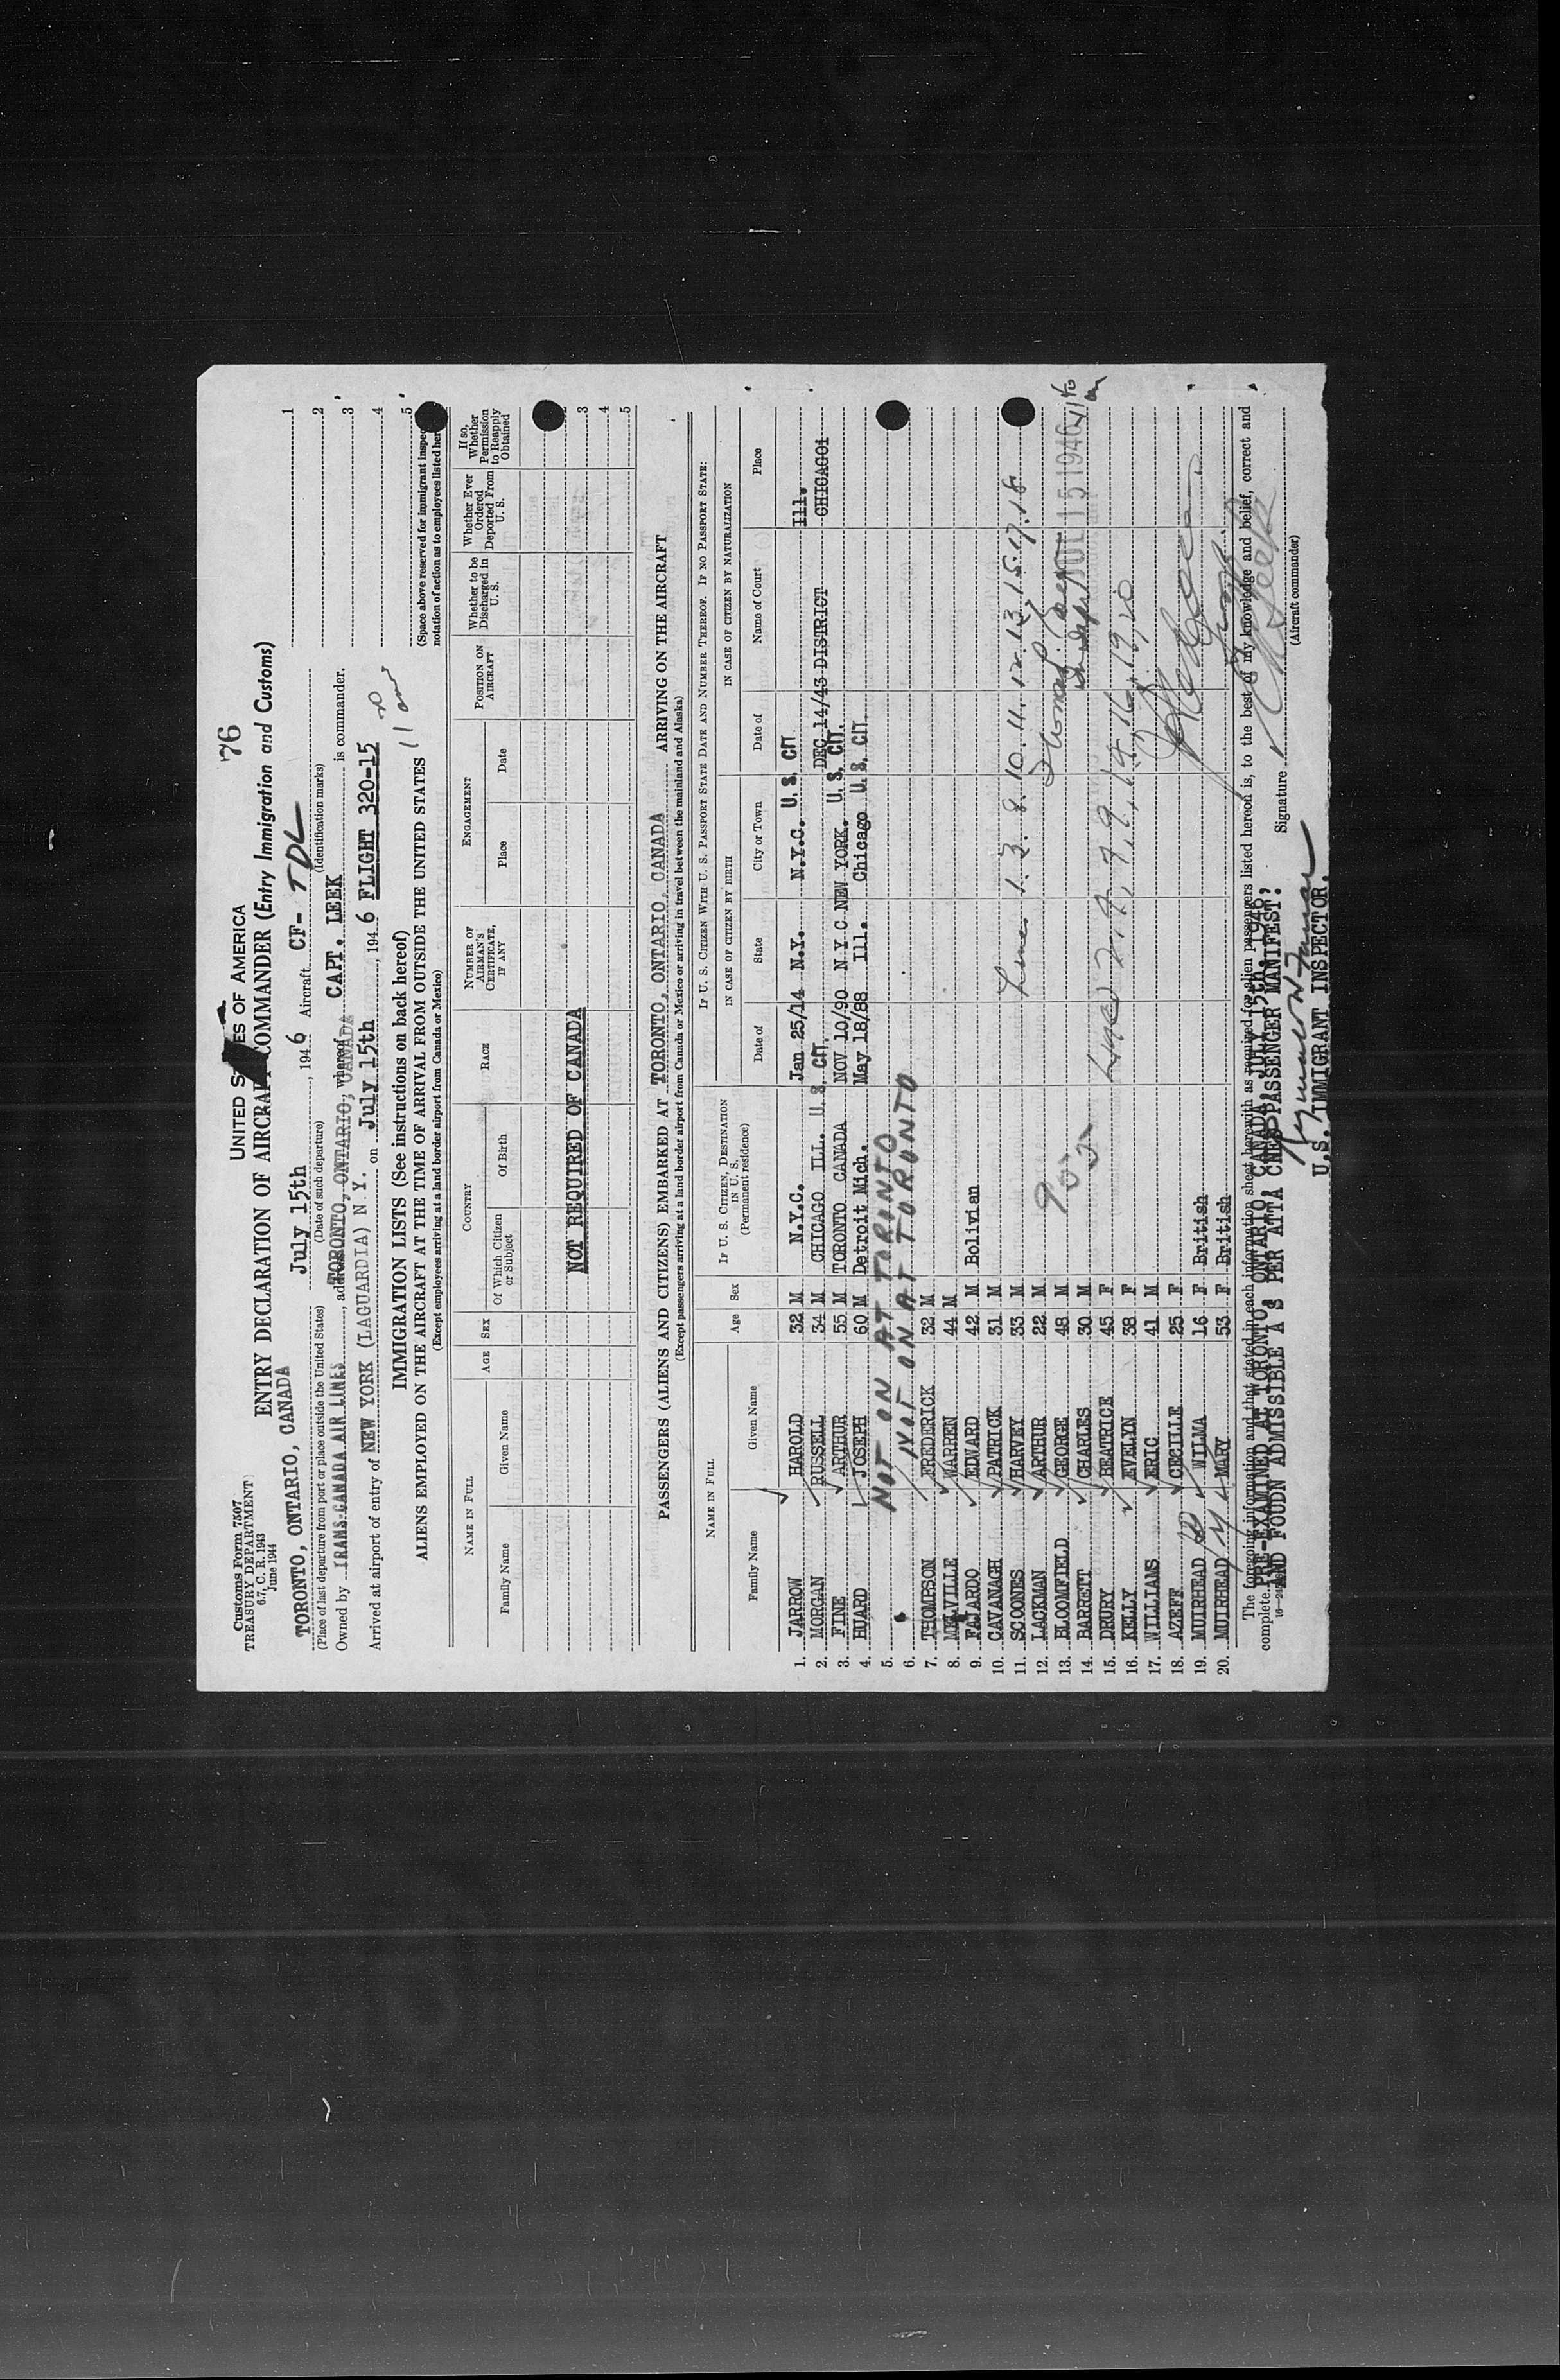 76
Customs Form 7507
TREASURY DEPARTMENT
6.7, C. R. 1943
June 1944
UNITED S ES OF AMERICA
ENTRY DECLARATION OF AIRCRAFT COMMANDER (Entry Immigration and Customs)
TORONTO, ONTARIO, CANADA July 15th, 1946 Aircraft CF- TDL
(Place of last departure from port or place outside the United States) (Date of such departure) (Identification marks)
Owned by TRANS-CANADA AIR LINES, ad TORONTO, ONTARIO, CANADA whereof CAPT. LEEK is commander.
Arrived at airport of entry of NEW YORK (LAGUARDIA) N.Y. on July 15th, 1946 FLIGHT 320-15
1
2
3
4
5
(Space above reserved for immigrant inspec
notation of action as to employees listed her
IMMIGRATION LISTS (See instructions on back hereof)
ALIENS EMPLOYED ON THE AIRCRAFT AT THE TIME OF ARRIVAL FROM OUTSIDE THE UNITED STATES
(Except employees arriving at a land border airport from Canada or Mexico)
NAME IN FULL
Family Name Given Name
AGE SEX
COUNTRY
Of Which Citizen or Subject Of Birth
RACE
NUMBER OF AIRMAN'S CERTIFICATE, IF ANY
ENGAGEMENT
Place Date
POSITION ON AIRCRAFT
Whether to be Discharged in U. S.
Whether Ever Ordered Deported From U. S.
If so, Whether Permission to Reapply Obtained
NOT REQUIRED OF CANADA
3
4
5
PASSENGERS (ALIENS AND CITIZENS) EMBARKED AT TORONTO, ONTARIO, CANADA ARRIVING ON THE AIRCRAFT
(Except passengers arriving at a land border airport from Canada or Mexico or arriving in travel between the mainland and Alaska)
NAME IN FULL
Family Name Given Name
Age Sex
IF U. S. CITIZEN, DESTINATION IN U. S. (Permanent residence)
IF U. S. CITIZEN WITH U. S. PASSPORT STATE DATE AND NUMBER THEREOF. IF NO PASSPORT STATE:
IN CASE OF CITIZEN BY BIRTH
Date of State City or Town
IN CASE OF CITIZEN BY NATURALIZATION
Date of Name of Court Place
1. JARROW HAROLD 32 M N.Y.C. Jan 25/14 N.Y. N.Y.C. U. S. CIT. Ill.
2. MORGAN RUSSELL 34 M CHICAGO ILL. U. S. CIT. DEC 14/43 DISTRICT CHICAGO1
3. FINE ARTHUR 55 M TORONTO CANADA NOV 10/90 N Y C NEW YORK. U. S. CIT.
4. HUARD JOSEPH 60 M Detroit Mich. May 18/88 Ill. Chicago U. S. CIT.
5. NOT ON AT TORONTO
6. NOT ON AT TORONTO
7. THOMPSON FREDERICK 32 M
8. MELVILLE WARREN 44 M
9. FAJARDO EDWARD 42 M Bolivian
10. CAVANAGH PATRICK 31 M
11. SCOONES HARVEY 33 M Lines 1.3.8.10.11.12.13.15.17.18
12. LACKMAN ARTHUR 22 M
13. BLOOMFIELD GEORGE 48 M
14. BARRETT CHARLES 30 M JUL 15 1946
15. DRURY BEATRICE 45 F
16. KELLY EVELYN 38 F
17. WILLIAMS ERIC 41 M
18. AZEFF CECILLE 25 F
19. MUIRHEAD WILMA 16 F British
20. MUIRHEAD MARY 53 F British
The foregoing information and that stated in each information sheet herewith as required for alien passengers listed hereon is, to the best of my knowledge and belief, correct and
complete.
PRE-EXAMINED AT TORONTO, ONTARIO, CANADA, JULY 15th, 1946,
AND FOUDN ADMISSIBLE A S PER ATTA CHED PASSENGER MANIFEST;
Signature
(Aircraft commander)
U.S. IMMIGRANT INSPECTOR.